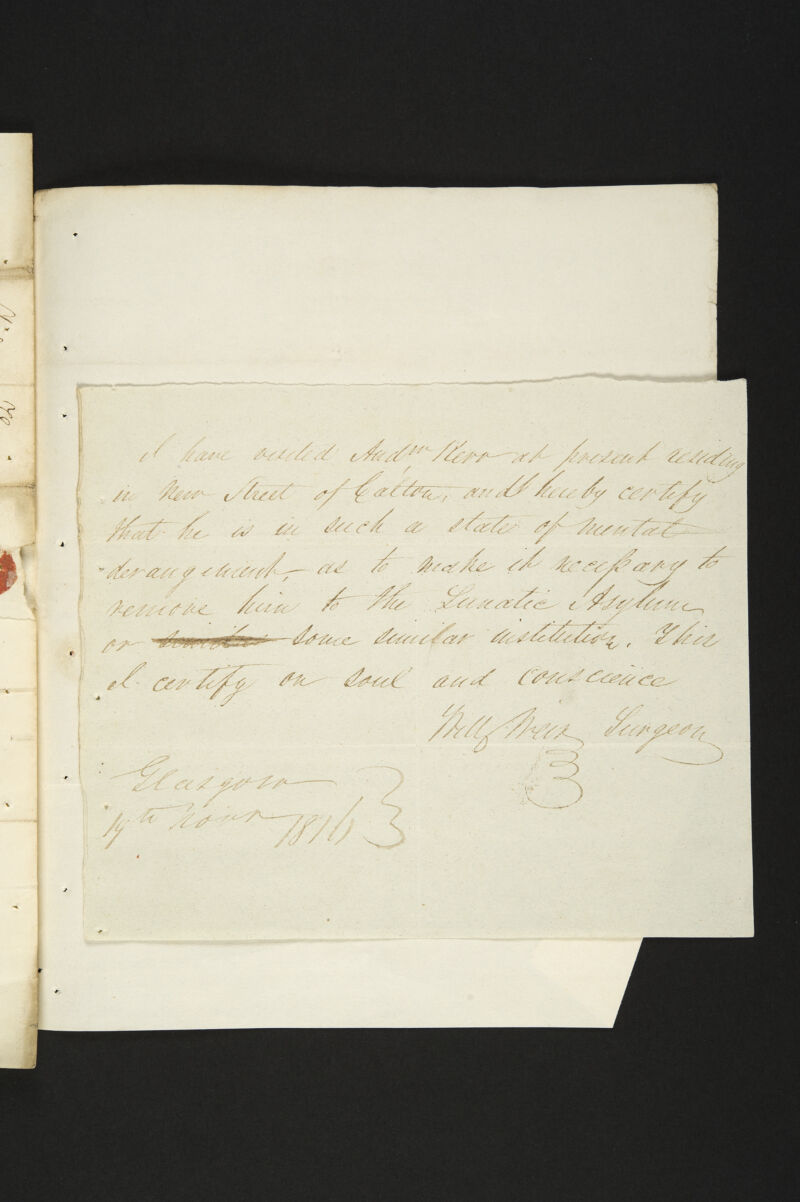 I have visited Andw Kerr at present residing
in New Street of Calton, and I hereby certify
that he is in such a state of mental
derangement, as to make it necessary to
remove him to the Lunatic Asylum
or similar some similar institution. This
I certify on soul and conscience
Will Weir Surgeon
Glasgow
19th Novr 1816